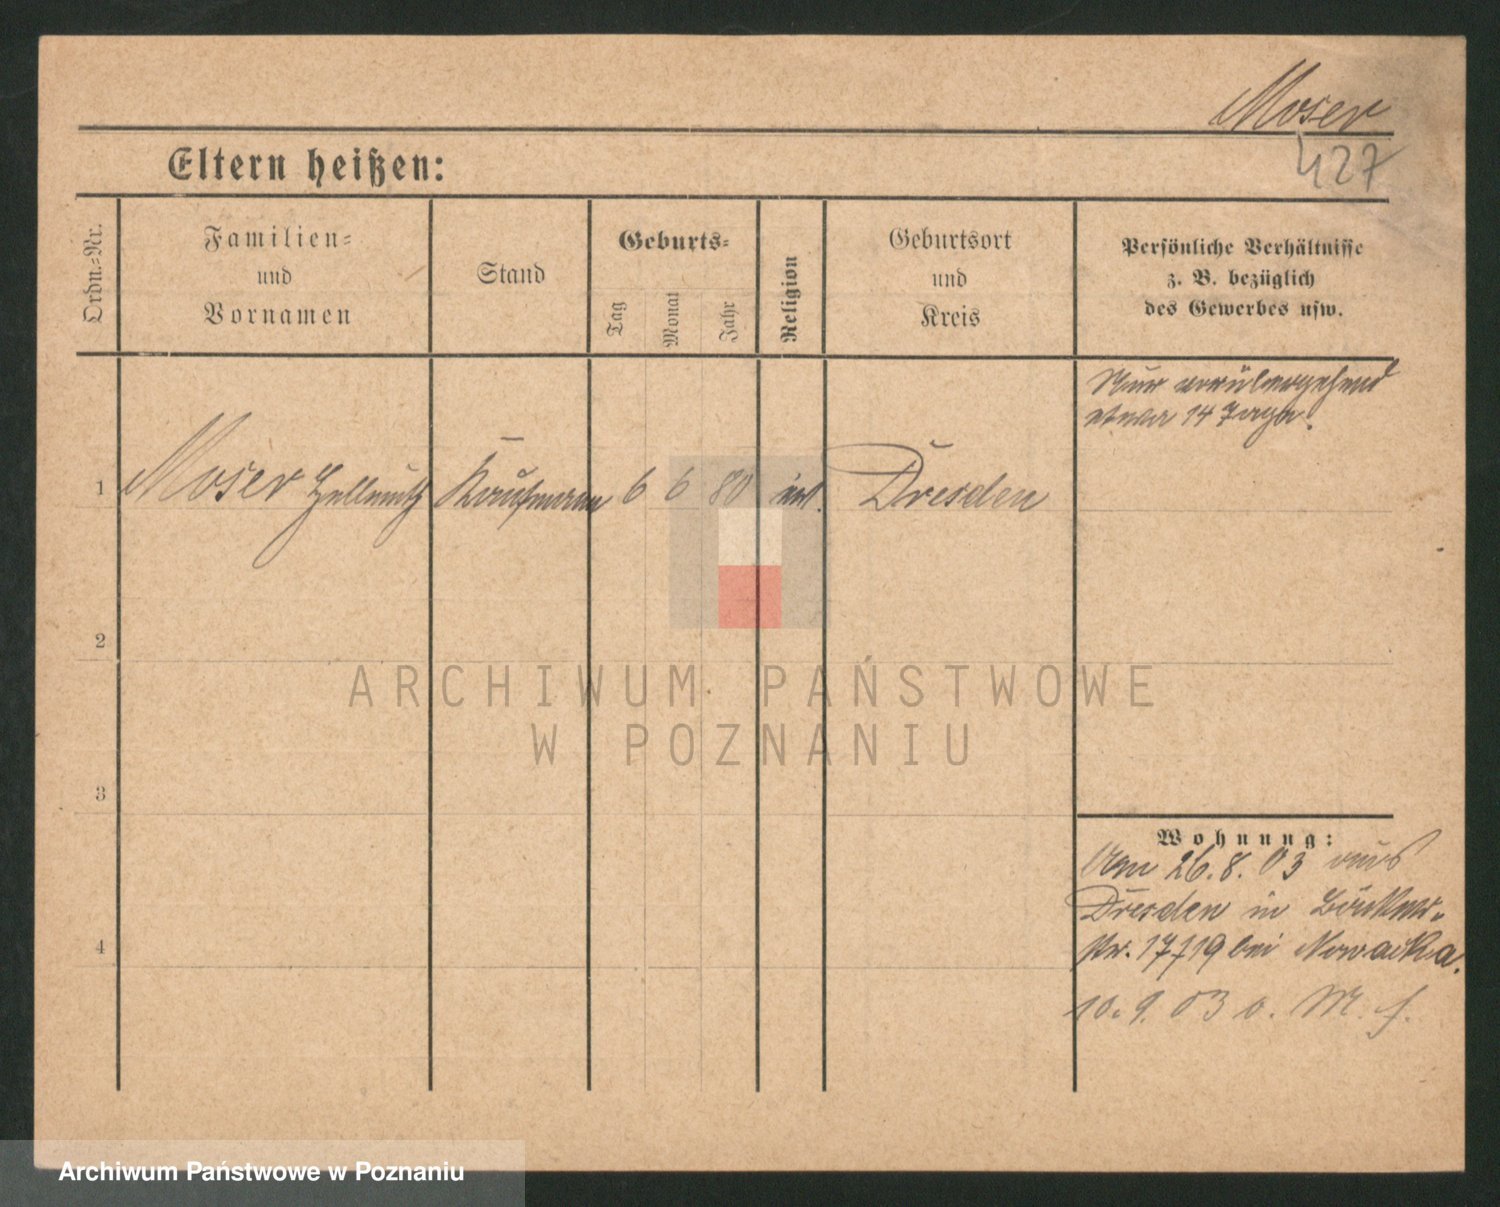 Moser
427
Eltern heißen:
Ordn.-Nr.
Familien-
und
Vornamen
Stand
Geburts-
Tag
Monat
Jahr
Religion
Geburtsort
und
Kreis
Persönliche Verhältnisse
z. B. bezüglich
des Gewerbes usw.
Nur vorübergehend
etwa 14 Tage.
1 Moser Hellmuth Kaufmann 6 6 80 Dresden
2
3
Wohnung:
26.8.03 aus
Dresden in
17/19 bei Nowacka.
4
10.9.03 o. M. f.
ARCHIWUM PAŃSTWOWE
W POZNANIU
Archiwum Państwowe w Poznaniu